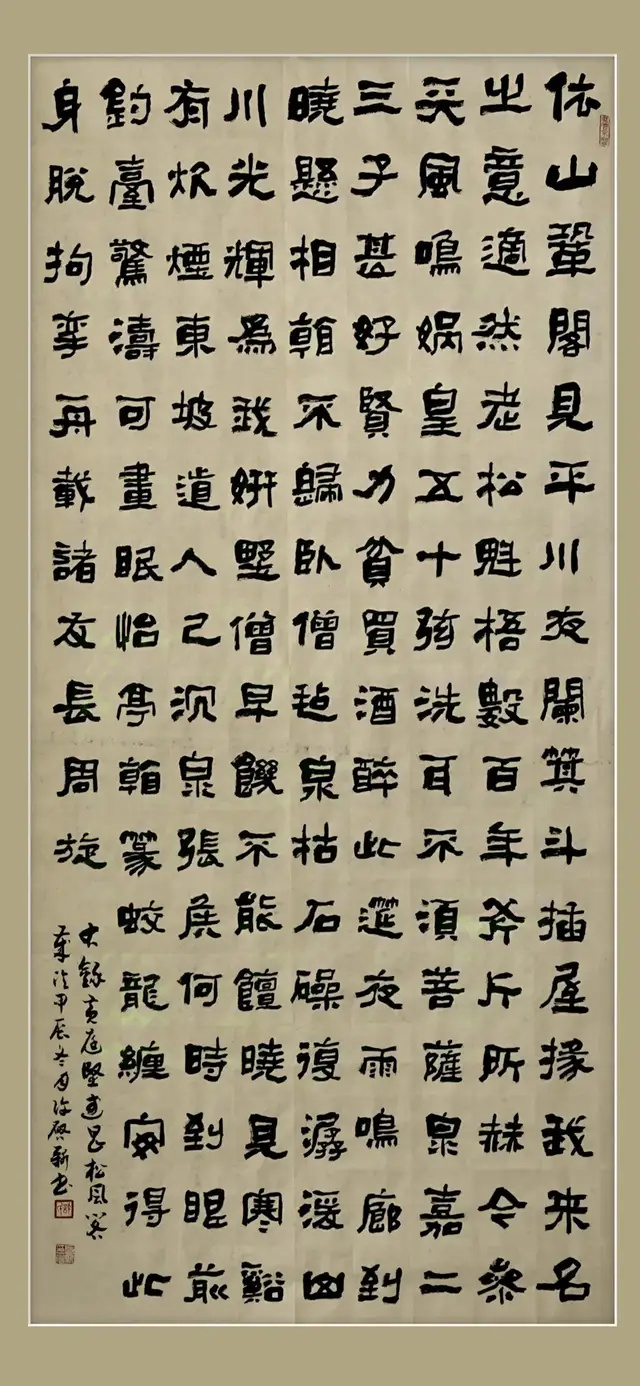 依山築閣見平川夜闌箕斗插屋椽我來名
之意適然老松魁梧數百年斧斤所赦今參
天風鳴媧皇五十弦洗耳不須菩薩泉嘉二
三子甚好賢力貧買酒醉此筵夜雨鳴廊到
曉懸相看不歸臥僧氈泉枯石燥復潺湲山
川光輝為我妍野僧早饑不能饘曉見寒谿
有炊煙東坡道人已沉泉張侯何時到眼前
釣臺驚濤可晝眠怡亭看篆蛟龍纏安得此
身脫拘攣舟載諸友長周旋
錄黃庭堅武昌松風閣
甲辰冬月許啓新書